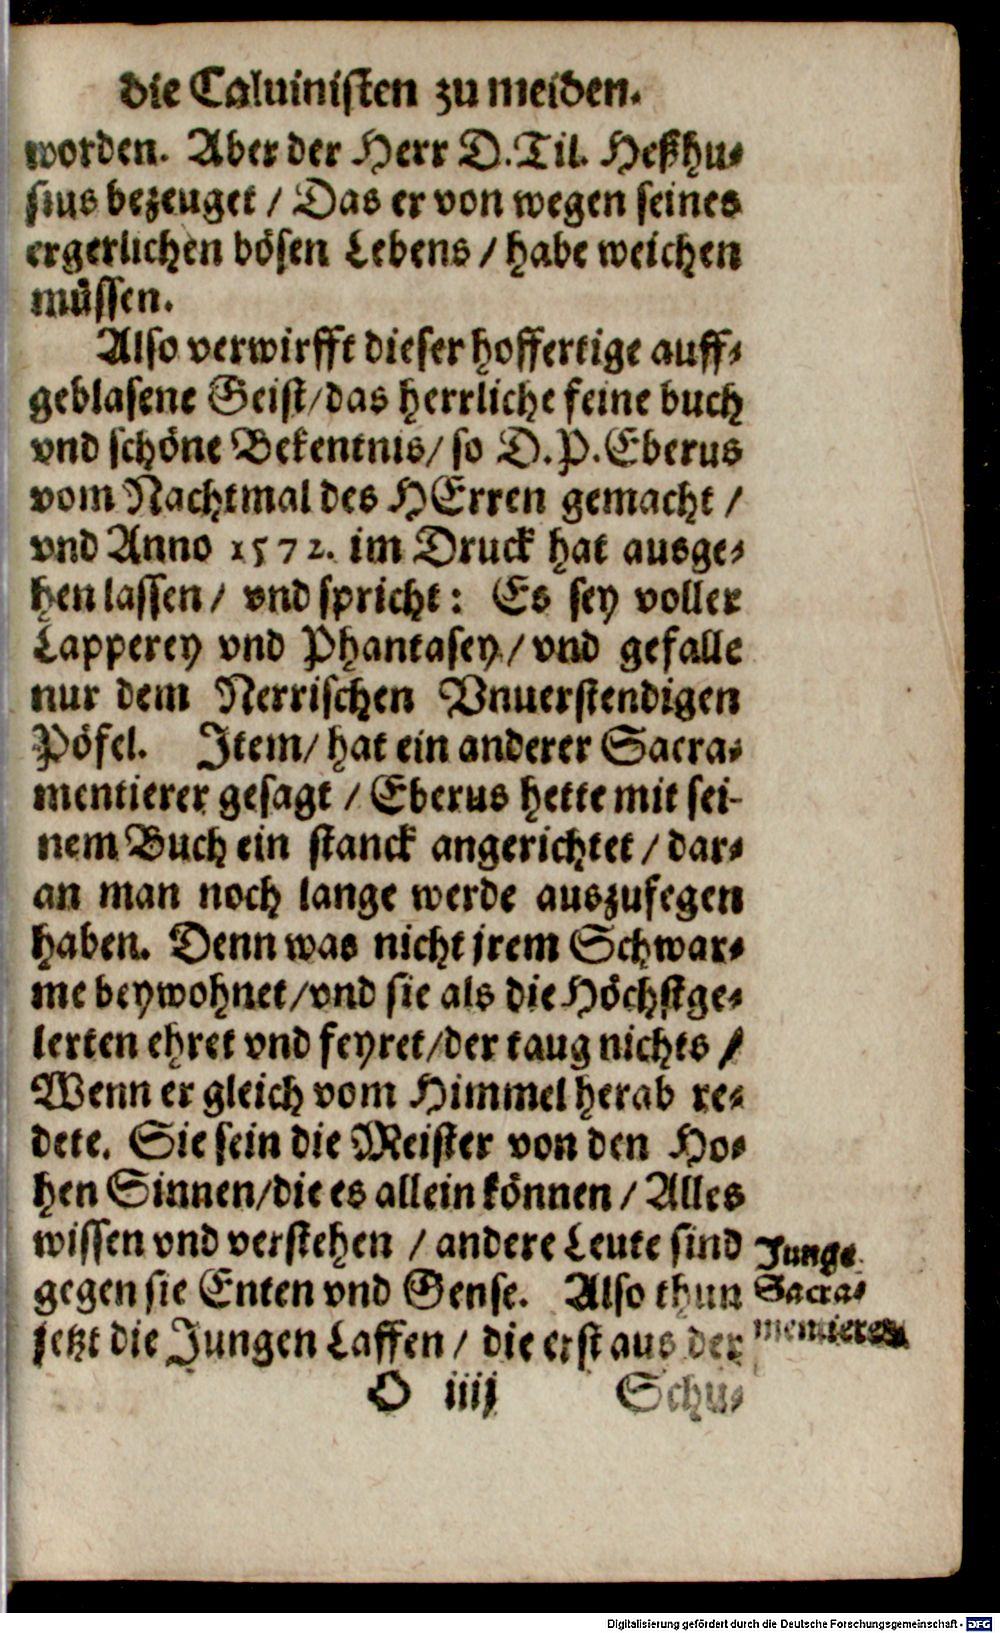 die Caluinisten zu meiden.
worden. Aber der Herr D. Til. Heßhu-
sius bezeuget / Das er von wegen seines
ergerlichen bösen Lebens / habe weichen
müssen.
Also verwirfft dieser hoffertige auff-
geblasene Geist / das herrliche feine buch
vnd schöne Bekentnis / so D. P. Eberus
vom Nachtmal des HErren gemacht /
vnd Anno 1572. im Druck hat ausge-
hen lassen / vnd spricht: Es sey voller
Lapperey vnd Phantasey / vnd gefalle
nur dem Nerrischen Vnuerstendigen
Pöfel. Item / hat ein anderer Sacra-
mentierer gesagt / Eberus hette mit sei-
nem Buch ein stanck angerichtet / dar-
an man noch lange werde auszufegen
haben. Denn was nicht jrem Schwar-
me beywohnet / vnd sie als die Höchstge-
lerten ehret vnd feyret / der taug nichts /
Wenn er gleich vom Himmel herab re-
dete. Sie sein die Meister von den Ho-
hen Sinnen / die es allein können / Alles
wissen vnd verstehen / andere Leute sind
gegen sie Enten vnd Gense. Also thun
jetzt die Jungen Laffen / die erst aus der
Junge
Sacra-
mentierer
O iiij Schu-
Digitalisierung gefördert durch die Deutsche Forschungsgemeinschaft - DFG